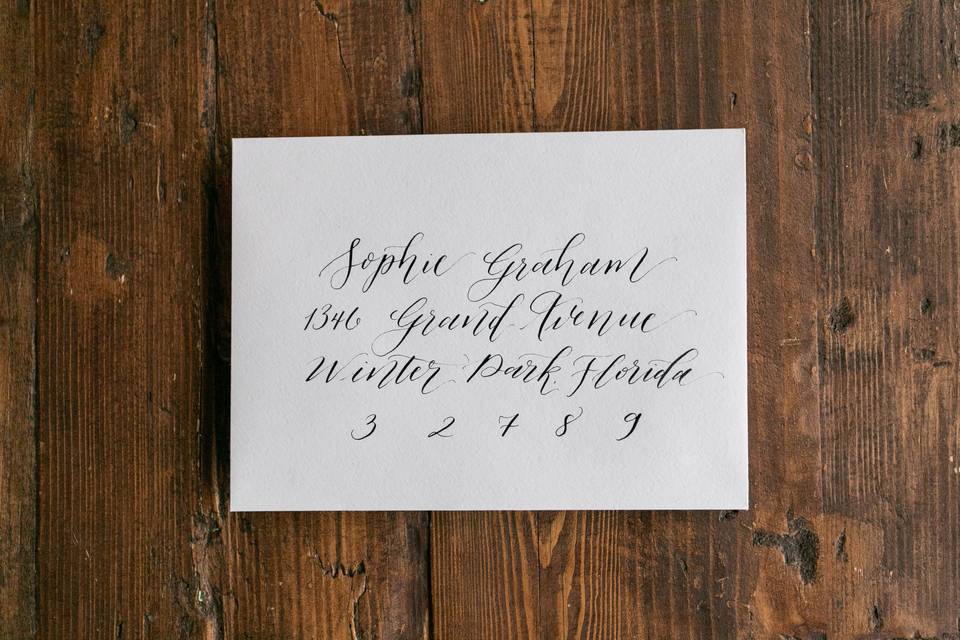 Sophie Graham
1346 Grand Avenue
Winter Park, Florida
3 2 7 8 9